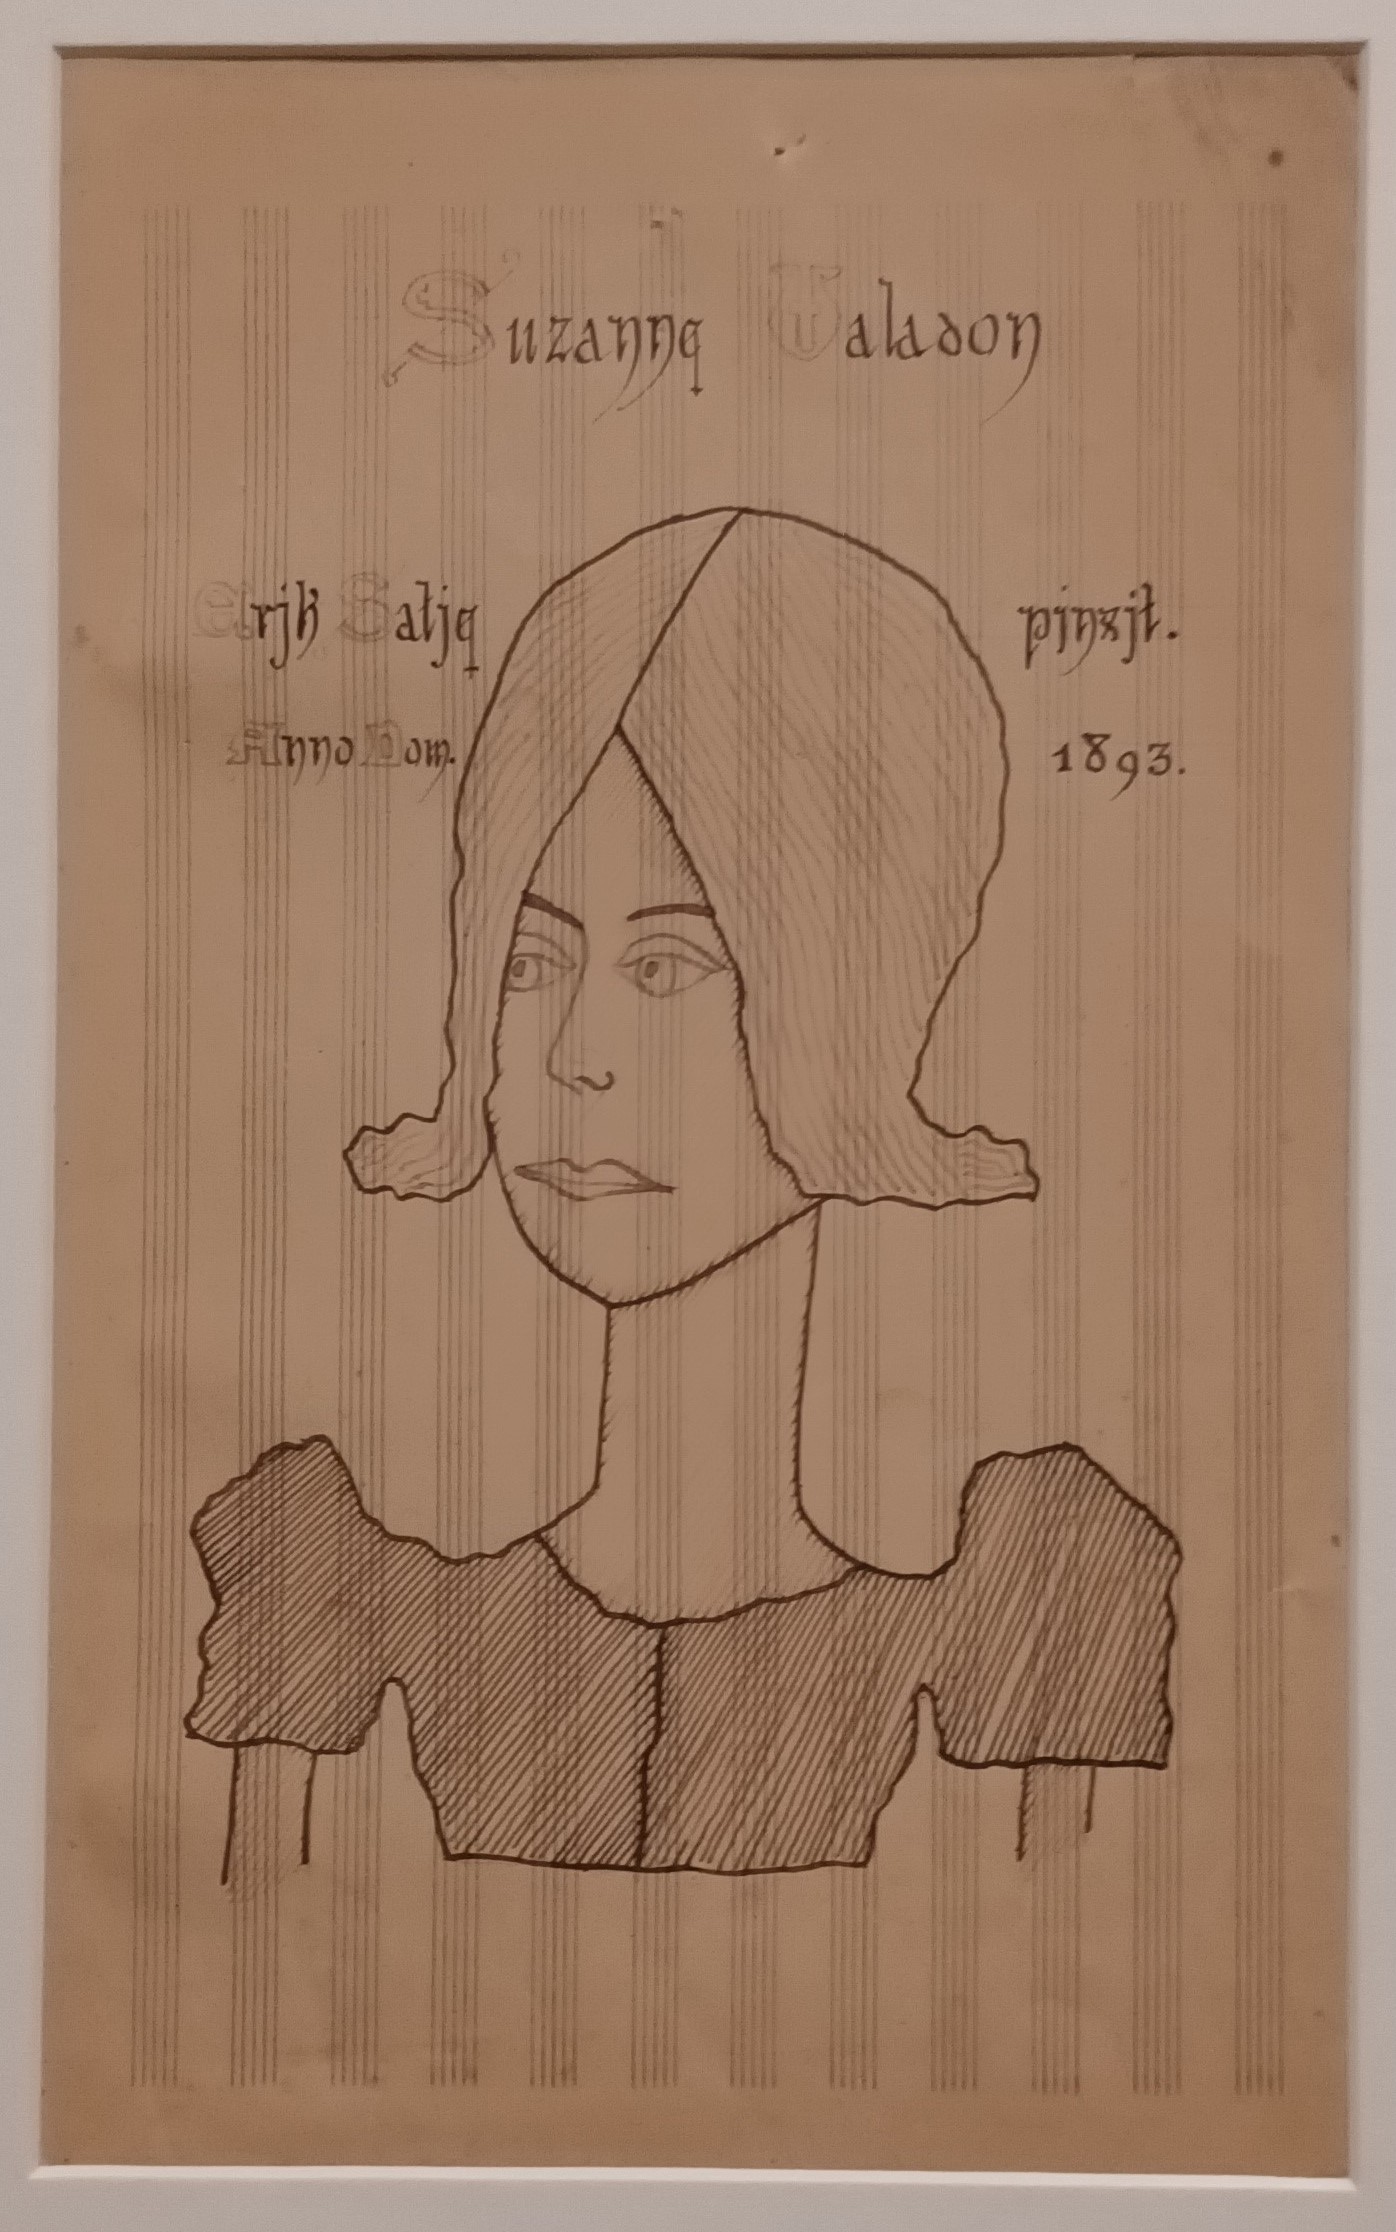 Suzanne Valadon
Erjk Satje pjnxjt.
Anno Dom. 1893.